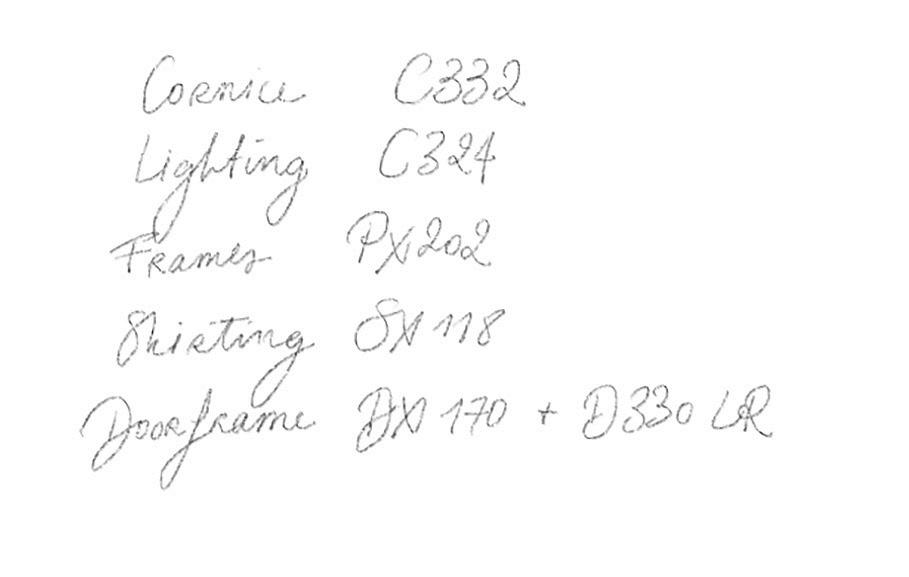 Cornice C332
Lighting C324
Frames PX202
Skirting SX118
Doorframe DX170 + D330 LR